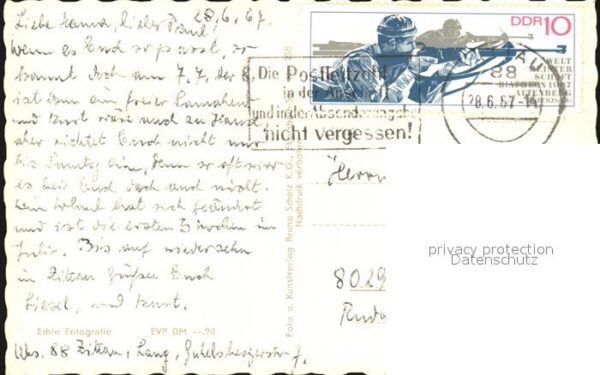 28.6.67.
Liebe Hanna, lieber Paul,
wenn es Euch so passt so
kommt doch am 7.7. der
ist dann ein freier Sonnabend
und Kurt wäre auch zu Hause
aber richtet Euch nicht
bis Sonntag ein, denn so oft seid
es bei Euch doch auch nicht.
Mein Urlaub hat sich geändert
und ist die ersten 3 Wochen im
Juli. Bis auf wiedersehn
in Zittau grüßen Euch
Liesel, und Kurt.
Echte Fotografie EVP DM —.20
Abs. 88 Zittau, Lang,
Foto u. Kunstverlag Bruno Scholz K.G.,
Nachdruck verboten
DDR 10
WELT
MEISTER
SCHAFT
BIATHLON 1967
ALTENBERG
(ERZGEB)
Die Postleitzahl
in der Anschrift
und in der Absenderangabe
nicht vergessen!
88
28.6.67-14
Herrn
8029
privacy protection
Datenschutz